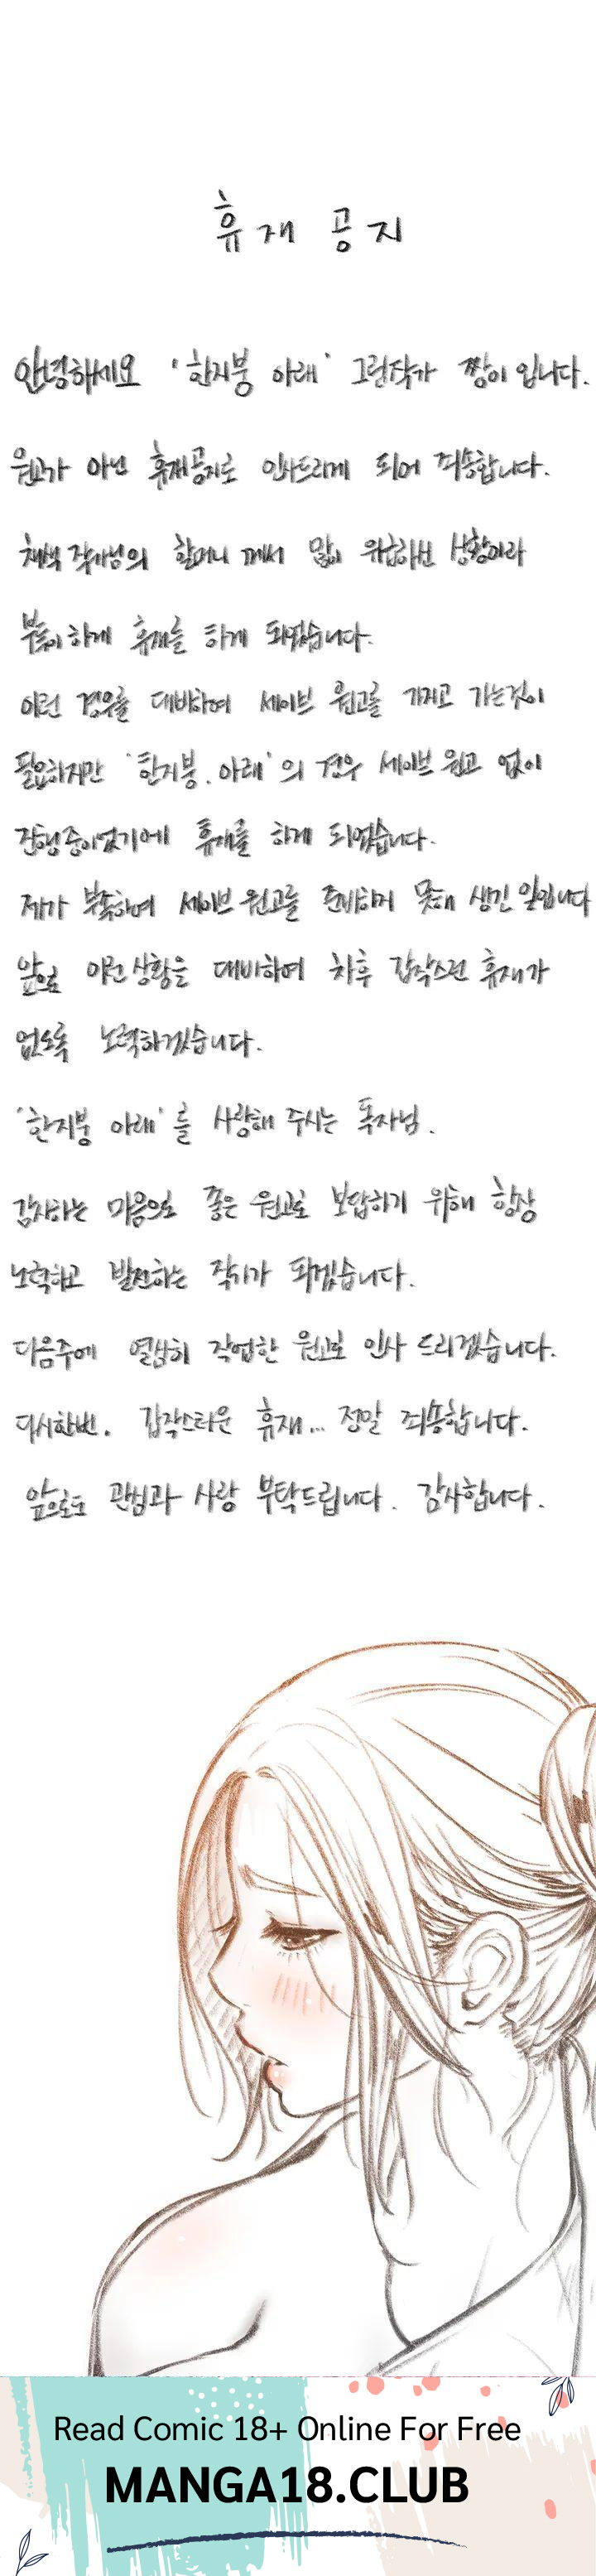 휴재 공지
안녕하세요 '한지붕 아래' 그림작가 짱이 입니다.
원고가 아닌 휴재공지로 인사드리게 되어 죄송합니다.
채색 작가님의 할머니 께서 많이 위급하신 상황이라
부득이하게 휴재를 하게 되었습니다.
이런 경우를 대비하여 세이브 원고를 가지고 가는것이
필요하지만 '한지붕.아래'의 경우 세이브 원고 없이
진행중이었기에 휴재를 하게 되었습니다.
제가 부족하여 세이브 원고를 준비하지 못해 생긴 일입니다
앞으로 이런 상황을 대비하여 차후 갑작스런 휴재가
없도록 노력하겠습니다.
'한지붕 아래'를 사랑해 주시는 독자님.
감사하는 마음으로 좋은 원고로 보답하기 위해 항상
노력하고 발전하는 작가가 되겠습니다.
다음주에 열심히 작업한 원고로 인사 드리겠습니다.
다시한번. 갑작스러운 휴재... 정말 죄송합니다.
앞으로도 관심과 사랑 부탁드립니다. 감사합니다.
Read Comic 18+ Online For Free
MANGA18.CLUB